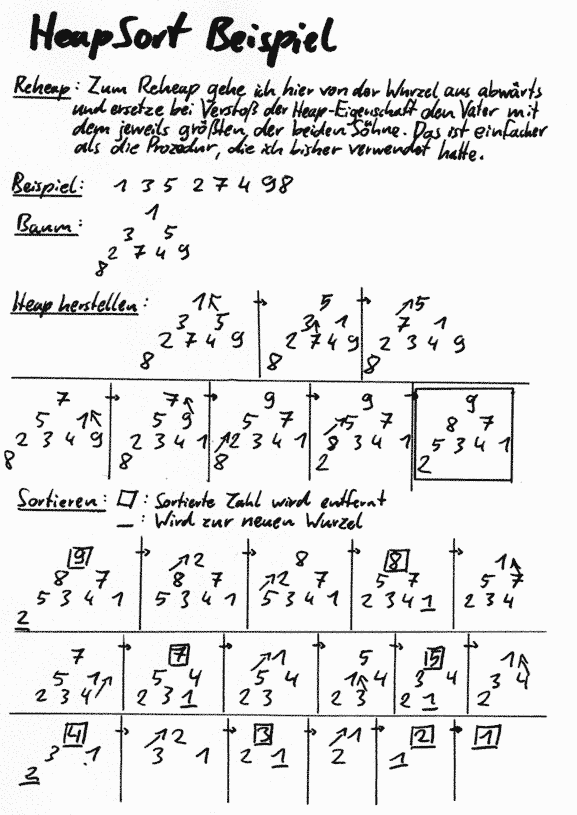 HeapSort Beispiel
Reheap: Zum Reheap gehe ich hier von der Wurzel aus abwärts
und ersetze bei Verstoß der Heap-Eigenschaft den Vater mit
dem jeweils größten, der beiden Söhne. Das ist einfacher
als die Prozedur, die ich bisher verwendet hatte.
Beispiel: 1 3 5 2 7 4 9 8
Baum: 1
3 5
2 7 4 9
8
Heap herstellen: 1 → 5 → 5
3 5 3 1 7 1
2 7 4 9 2 7 4 9 2 3 4 9
8 8 8
7 → 7 → 9 → 9 → 9
5 1 5 9 5 7 5 7 8 7
2 3 4 9 2 3 4 1 2 3 4 1 8 3 4 1 5 3 4 1
8 8 8 2 2
Sortieren: □ : Sortierte Zahl wird entfernt
_ : Wird zur neuen Wurzel
9 → 2 → 8 → 8 → 1
8 7 8 7 2 7 5 7 5 7
5 3 4 1 5 3 4 1 5 3 4 1 2 3 4 1 2 3 4
2
7 → 7 → 1 → 5 → 5 → 1
5 1 5 4 5 4 1 4 3 4 3 4
2 3 4 2 3 1 2 3 2 3 2 1 2
4 → 2 → 3 → 1 → 2 → 1
3 1 3 1 2 1 2 1
2